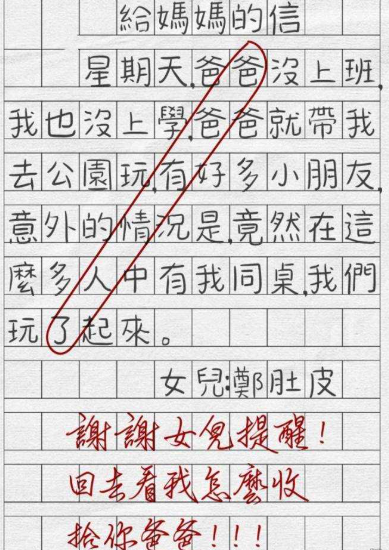 給媽媽的信
星期天,爸爸沒上班,
我也沒上學,爸爸就帶我
去公園玩,有好多小朋友,
意外的情況是,竟然在這
麼多人中有我同桌,我們
玩了起來。
女兒:鄭肚皮
謝謝女兒提醒!
回去看我怎麼收
拾你爸爸!!!